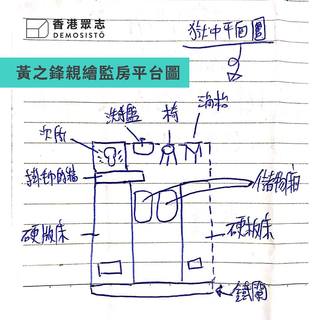 香港眾志
DEMOSISTŌ
獄中平面圖
黃之鋒親繪監房平台圖
洗手盤
椅
消枱
次所
掛衫的牆
儲物箱
硬板床
硬板床
鐵閘